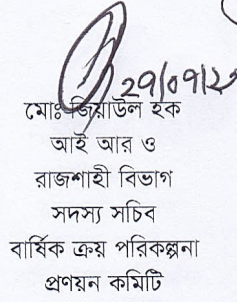 মোঃ জিয়াউল হক
আই আর ও
রাজশাহী বিভাগ
সদস্য সচিব
বার্ষিক ক্রয় পরিকল্পনা
প্রণয়ন কমিটি